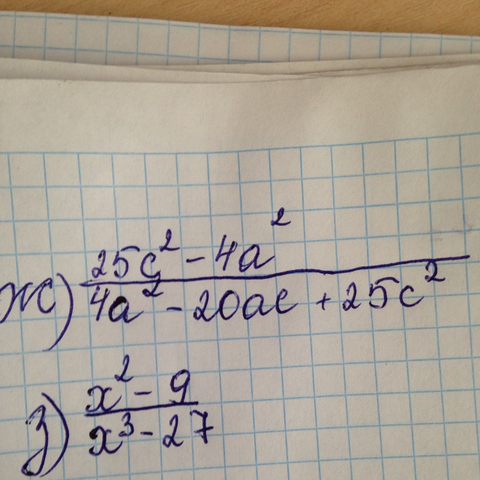 ж) (25c² - 4a²)/(4a² - 20ac + 25c²)
з) (x² - 9)/(x³ - 27)